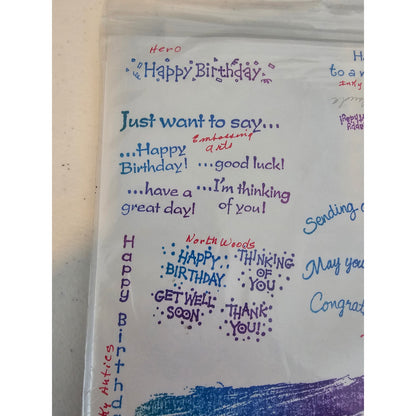 Hero
Happy Birthday
Just want to say...
Embossing
arts
...Happy
Birthday!
...good luck!
...have a
great day!
...I'm thinking
of you!
North Woods
HAPPY
BIRTHDAY
THINKING
OF
YOU
GET WELL
SOON
THANK
YOU!
Happy Birthd
to a
Sending
May you
Congrat